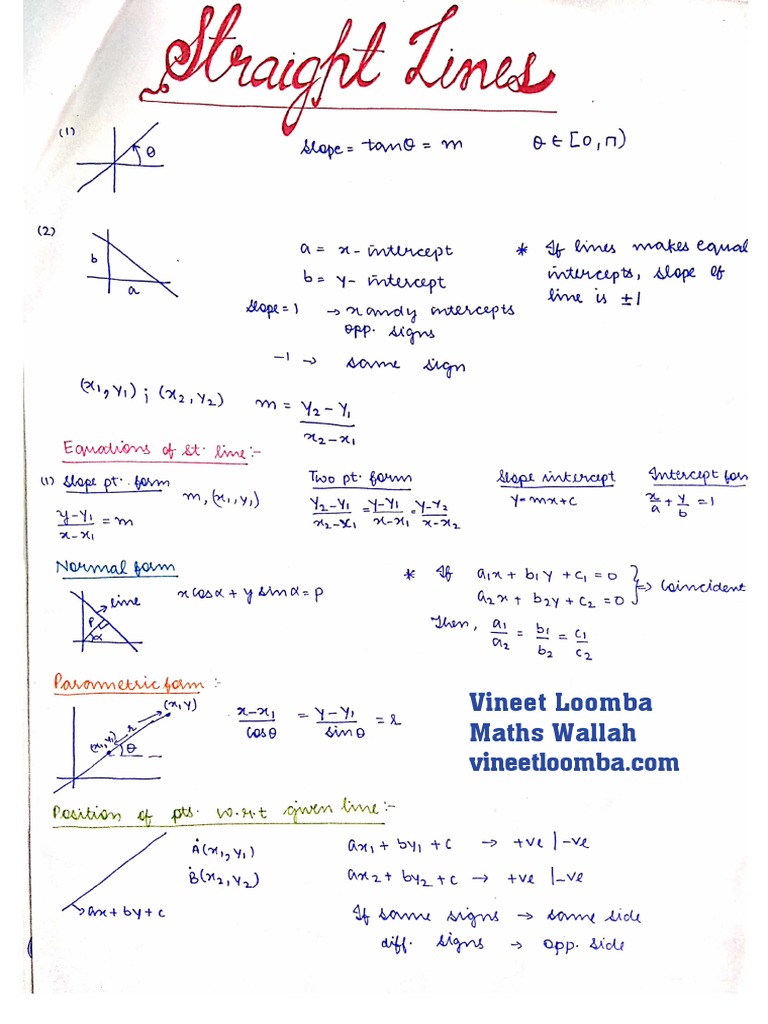 Straight Lines
(1) θ slope = tanθ = m θ ∈ [0, π)
(2) b a
a = x-intercept
b = y-intercept
slope = 1 → x and y intercepts
opp. signs
-1 → same sign
* If lines makes equal
intercepts, slope of
line is ±1
(x₁, y₁) ; (x₂, y₂) m = (y₂ - y₁)/(x₂ - x₁)
Equations of st. line :-
(1) Slope pt. form m, (x₁, y₁)
(y - y₁)/(x - x₁) = m
Two pt. form
(y₂ - y₁)/(x₂ - x₁) = (y - y₁)/(x - x₁) = (y - y₂)/(x - x₂)
Slope intercept
y = mx + c
Intercept for
x/a + y/b = 1
Normal form
line P α
x cosα + y sinα = p
* If a₁x + b₁y + c₁ = 0
a₂x + b₂y + c₂ = 0 } => Coincident
Then, a₁/a₂ = b₁/b₂ = c₁/c₂
Parametric form :-
(x, y) r (x₁, y₁) θ
(x - x₁)/cosθ = (y - y₁)/sinθ = r
Vineet Loomba
Maths Wallah
vineetloomba.com
Position of pts. w.r.t given line :-
A(x₁, y₁) ax₁ + by₁ + c → +ve | -ve
B(x₂, y₂) ax₂ + by₂ + c → +ve | -ve
→ ax + by + c
If same signs → same side
diff. signs → opp. side